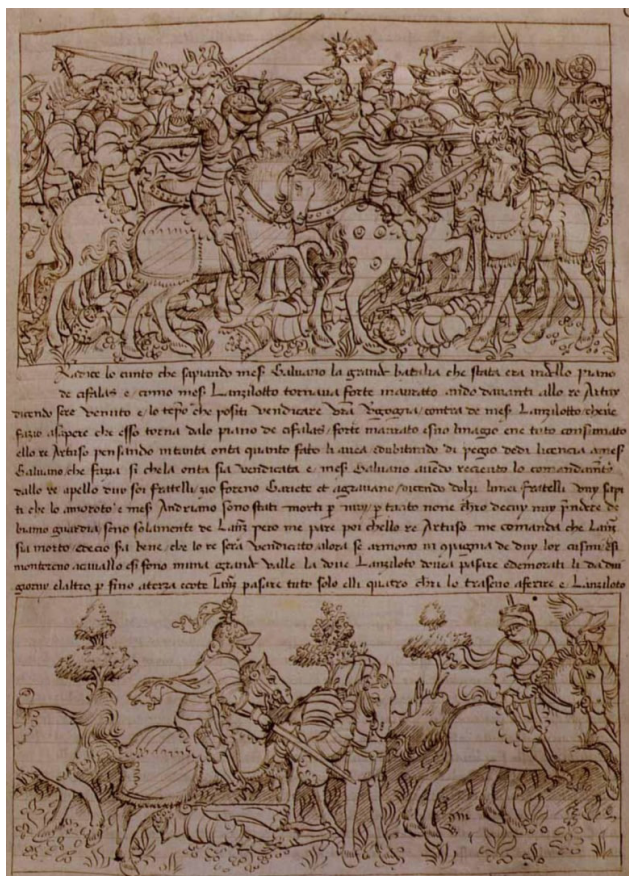 Radice lo cunto che sapiando mes Galuano la grande bataia che stata era indello piano
de cifalas e como mes Lanziloto tornaua forte inaurato ando dauanti allo re Artux
dicendo sere venuto e lo tepo che positi vendicare vra vgogna contra de mes Lanziloto
fazio asapere che esso torna dalo piano de cifalas forte e suo linagio ene tuto consumato
ello re Artuso pensando quanto fato li auea edubitando di pegio dedi licencia a mes
Galuano che faza si chela onta sia vendicata e mes Galuano auedo receuto lo
dallo re apello duy soi fratelli zio foreno Gariete et agrauano dicendo dolzi fratelli vuy sapi
ti che lo amoroto e mes Andriano sono stati morti p tanto none
biamo guardia seno solamente de pero me pare poi chello re Artuso me comanda che
sia morto sia bene che lo re sera vendicato alora se armono in de duy lor
montereno acauallo esi seno grande valle la doue Lanziloto douea pasare edemorati li da duy
giorni elaltro p fino aterza ecote pasare tuto solo elli quatro lo aferire e Lanziloto